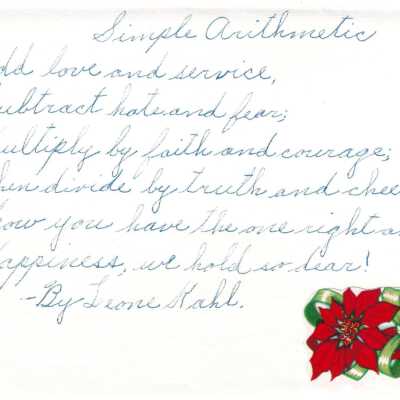 Simple Arithmetic
dd love and service,
ubtract hate and fear;
ultiply by faith and courage;
hen divide by truth and chee
ow you have the one right a
appiness, we hold so dear!
-By Leone Kahl.